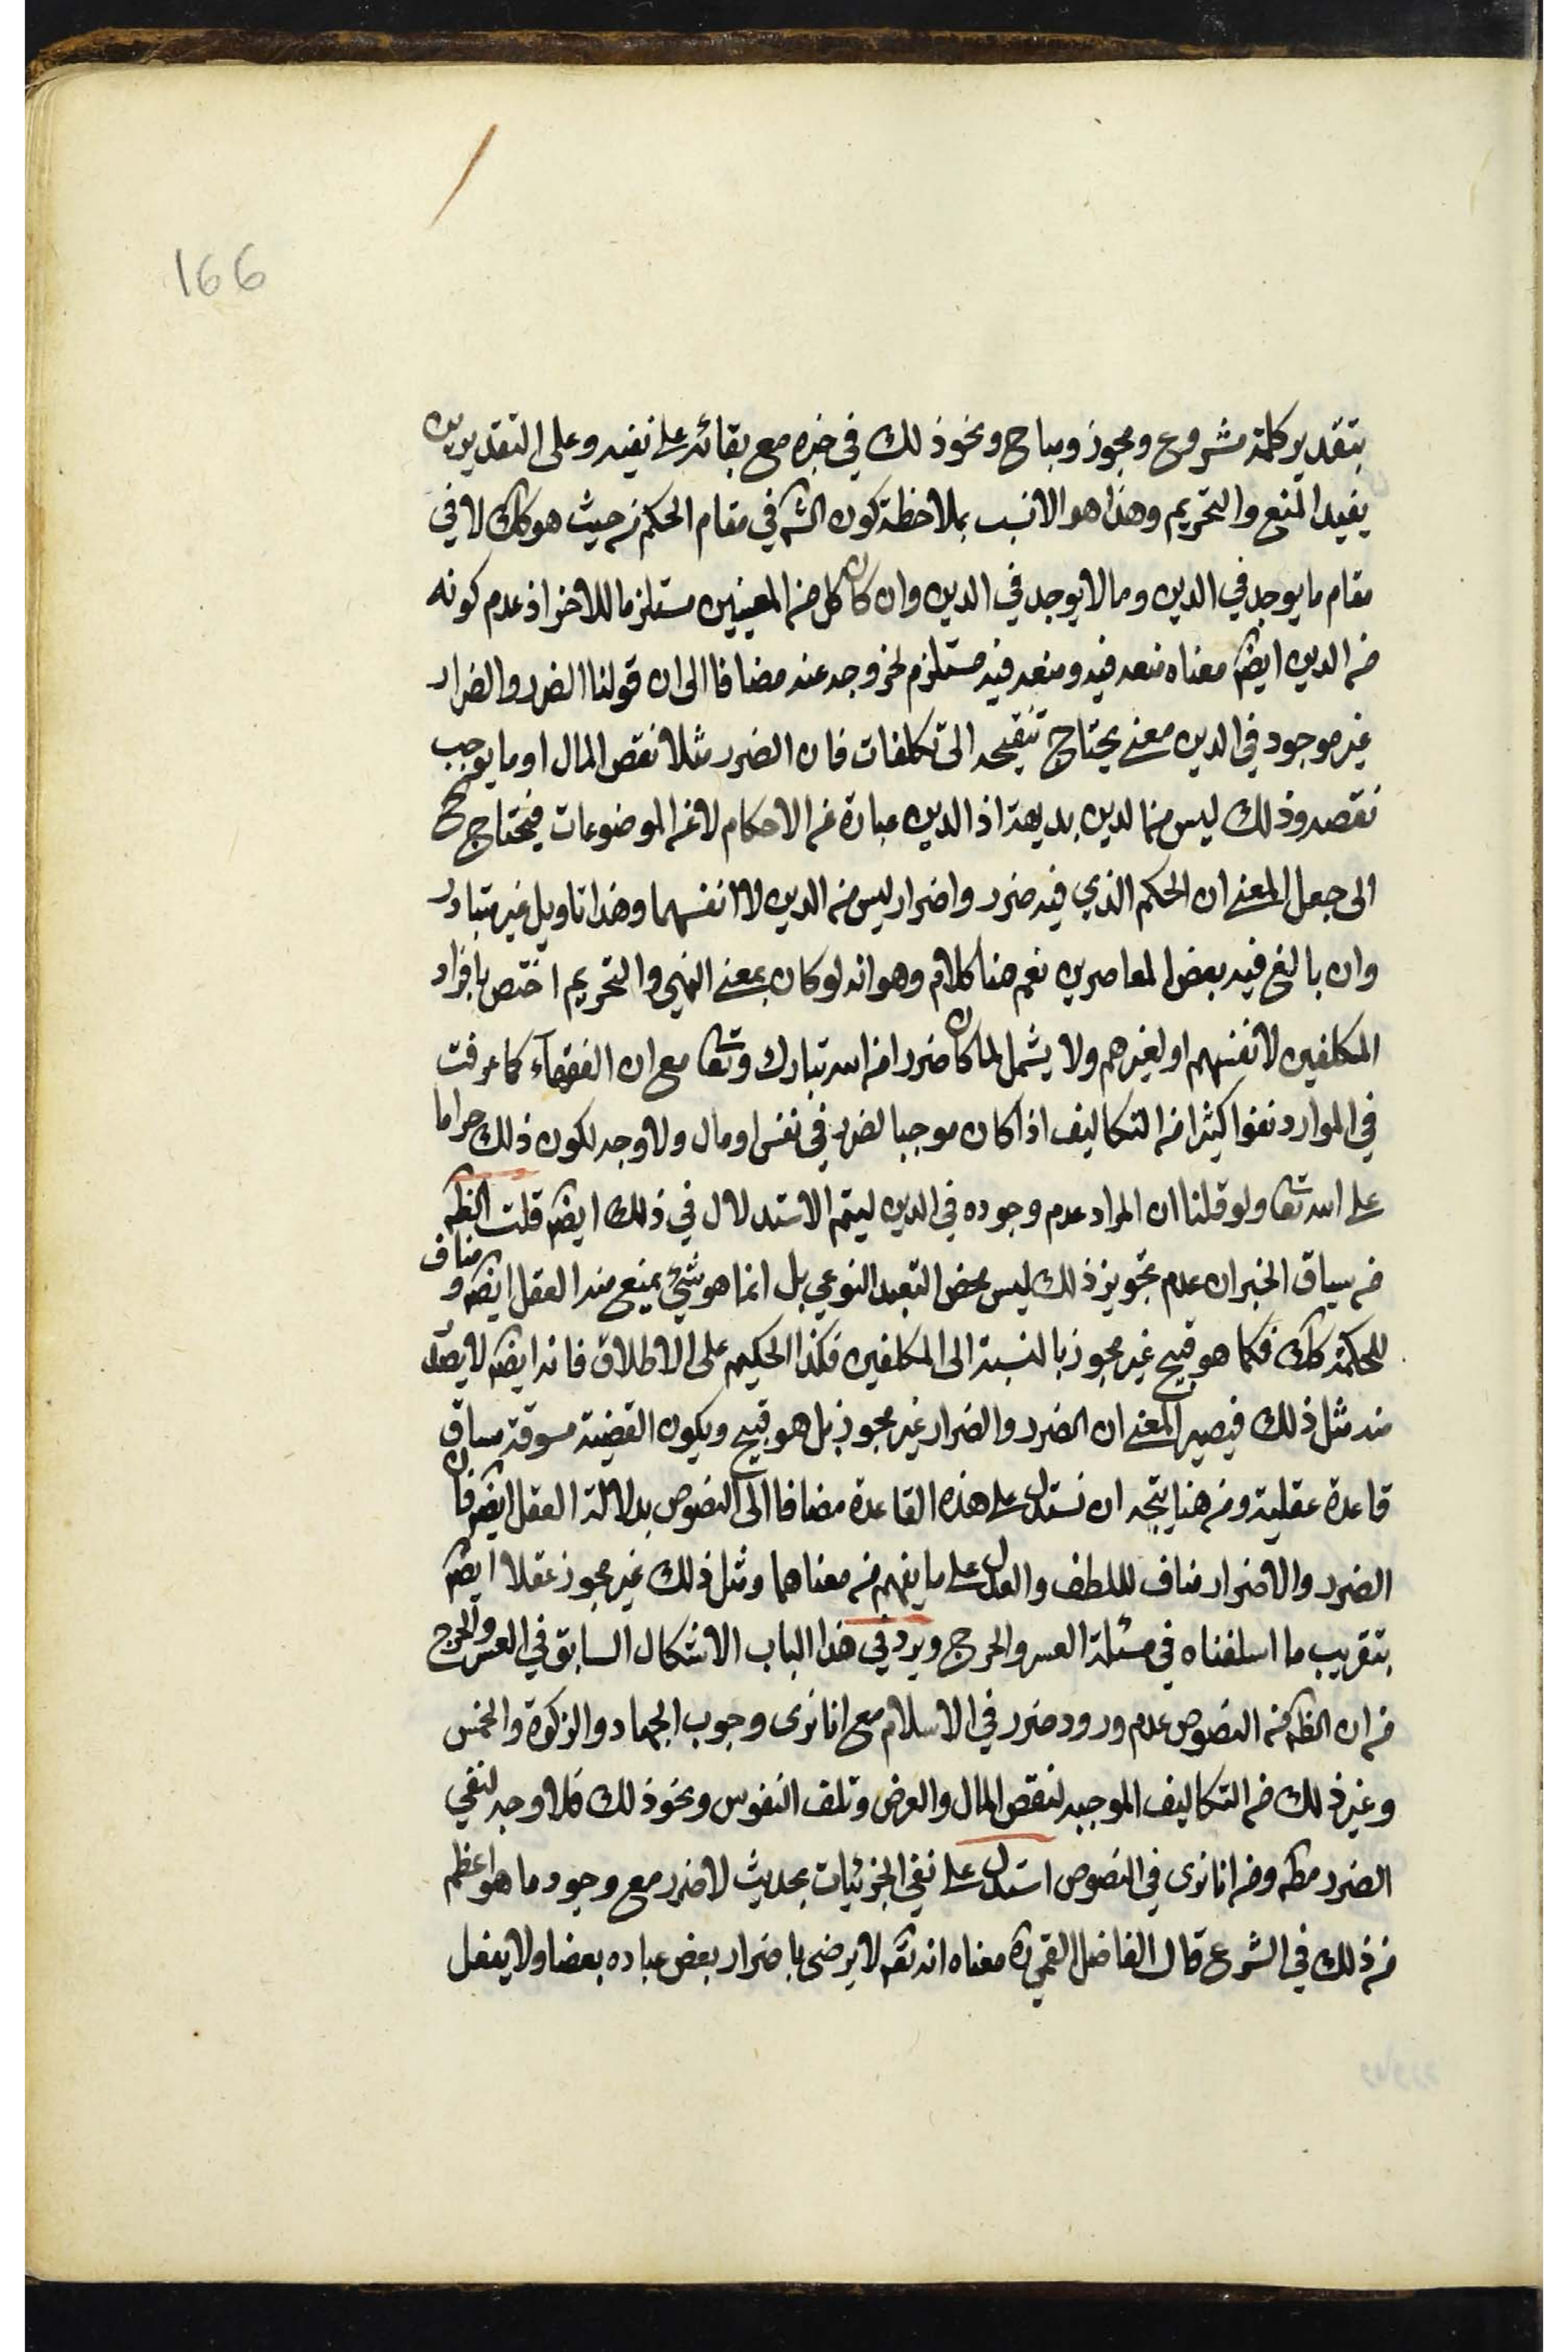 166
بتقدير كلمة مشروع ومجوز ومباح ونحو ذلك في خبره مع بقائه على نفيه وعلى التقديرين
يفيد المنع والتحريم وهذا هو الانسب بملاحظة كون الشه في مقام الحكم من حيث هو كك لا في
مقام ما يوجد في الدين وما لا يوجد في الدين وان كان كل من المعنيين مستلزما للاخر اذ عدم كونه
من الدين ايضه معناه منعه فيه ومنعه فيه مستلزم لخروجه عنه مضافا الى ان قولنا الضرر والضرار
غير موجود في الدين معنى يحتاج تنقيحه الى تكلفات فان الضرر مثلا نقص المال او ما يوجب
نقصه وذلك ليس من الدين بديهة اذ الدين عبارة عن الاحكام لا عن الموضوعات فيحتاج ح
الى جعل المعنى ان الحكم الذي فيه ضرر واضرار ليس من الدين لا انفسهما وهذا تاويل غير متبادر
وان بالغ فيه بعض المعاصرين نعم هنا كلام وهو انه لو كان بمعنى النهي والتحريم اختص بافراد
المكلفين لانفسهم او لغيرهم ولا يشمل لما كان ضررا من الله تبارك وتعا مع ان الفقهآء كما عرفت
في الموارد نفوا كثيرا من التكاليف اذا كان موجبا لضرر في نفس او مال ولا وجه لكون ذلك حراما
على الله تعا ولو قلنا ان المراد عدم وجوده في الدين ليتم الاستدلال في ذلك ايضه قلت الظه
من سياق الخبر ان عدم تجويز ذلك ليس محض التعبد النوعي بل انما هو شيء يمنع منه العقل ايضه ومناف
للحكمة كك فكما هو قبيح غير مجوز بالنسبة الى المكلفين فكذا الحكيم على الاطلاق فانه ايضه لا يصدر
منه مثل ذلك فيصير المعنى ان الضرر والضرار غير مجوز بل هو قبيح ويكون القضية مسوقة مساق
قاعدة عقلية ومن هنا يتجه ان نستدل على هذه القاعدة مضافا الى النصوص بدلالة العقل ايضه فان
الضرر والاضرار مناف لللطف والعدل على ما يفهم من معناهما ومثل ذلك غير مجوز عقلا ايضه
بتقريب ما اسلفناه في مسئلة العسر والحرج ويرد في هذا الباب الاشكال السابق في العسر والحرج
من ان الظه من النصوص عدم ورود ضرر في الاسلام مع انا نرى وجوب الجهاد والزكوة والخمس
وغير ذلك من التكاليف الموجبه لنقص المال والعرض وتلف النفوس ونحو ذلك فلا وجه لنفي
الضرر مطه ومن انا نرى في النصوص استدل على نفي الجزئيات بحديث لا ضرر مع وجود ما هو اعظم
من ذلك في الشرع قال الفاضل القمي ره معناه انه تعه لا يرضى باضرار بعض عباده بعضا ولا يفعل